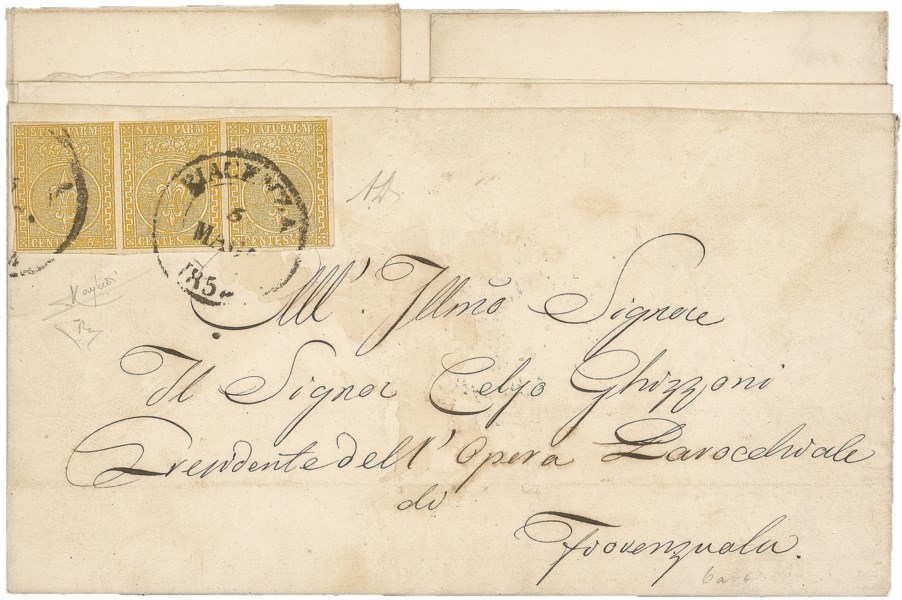 STATI PARM STATI PARM STATI PARM
CENTES. 5 CENTES. CENTES.
PIACENZA
5
185
All' Illmo Signore
Il Signor Celso Ghizzoni
Presidente dell' Opera Parocchiale
di
Fiorenzuola.